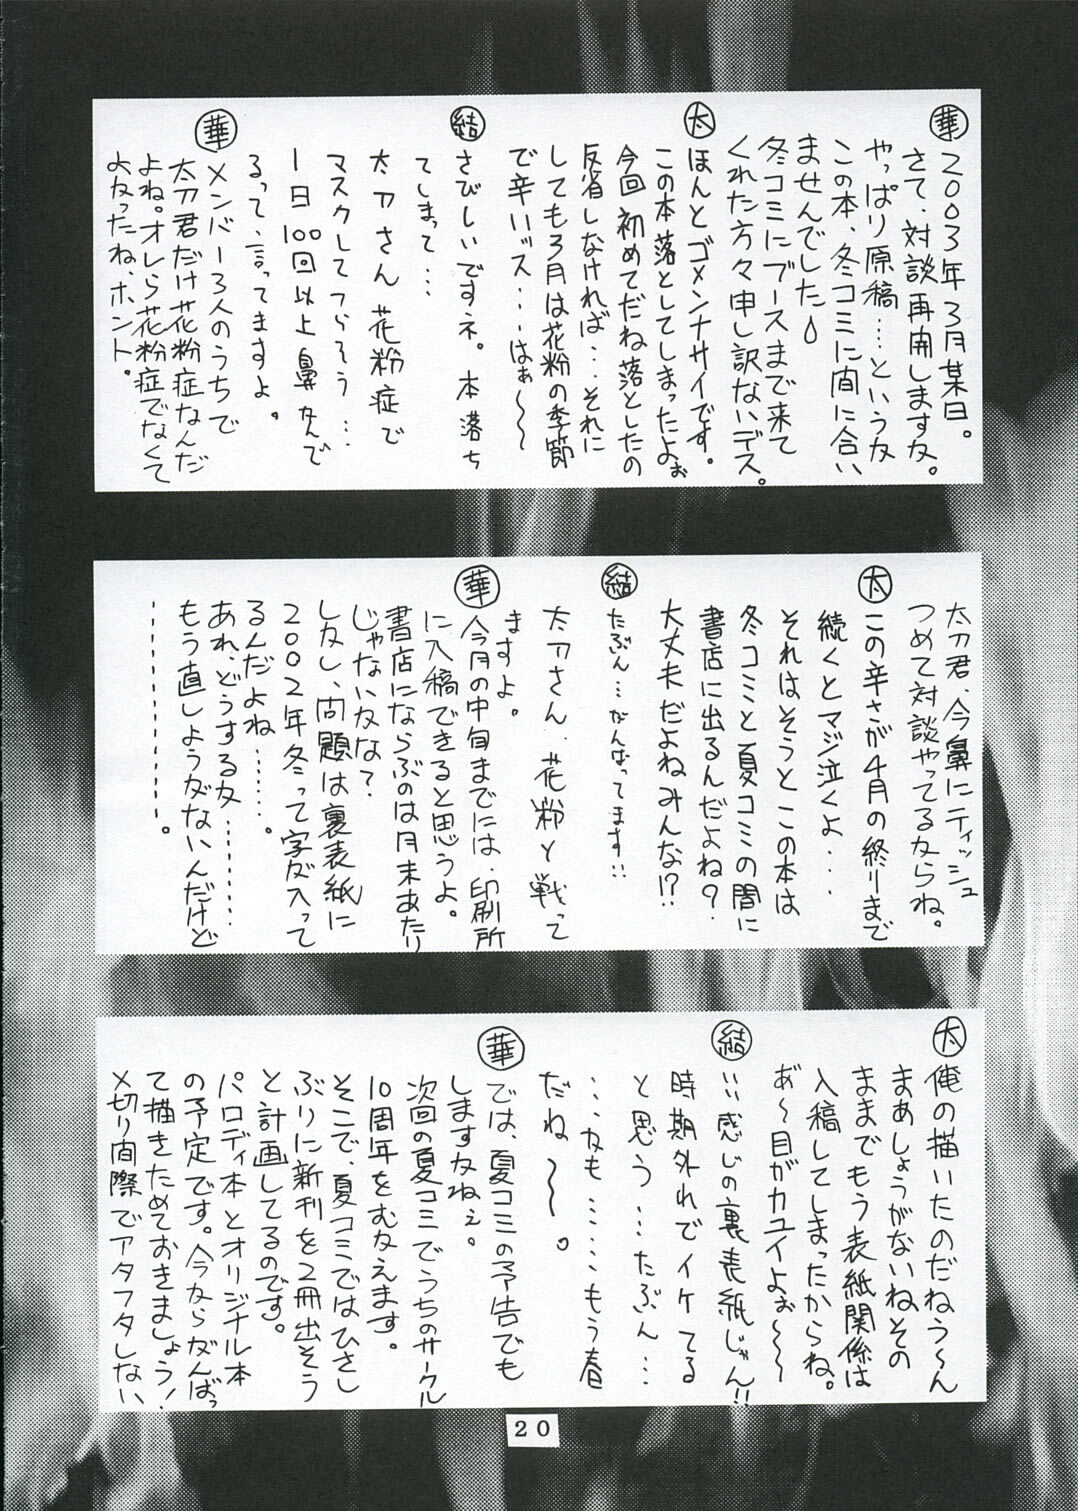 華 2003年3月某日。
さて、対談再開しますな。
やっぱり原稿…というな
この本、冬コミに間に合い
ませんでした
冬コミにブースまで来て
くれた方々申し訳ないデス。
太 ほんとゴメンナサイです。
この本落としてしまったよぉ
今回初めてだね落としたの
反省しなければ…それに
しても3月は花粉の季節
で辛いッス…はぁ〜
結 さびしいですネ。本落ち
てしまって…
太刀さん花粉症で
マスクしてつらそう…
1日100回以上鼻かんで
るって、言ってますよ。
華 メンバー3人のうちで
太刀君だけ花粉症なんだ
よね。オレら花粉症でなくて
よかったね、ホント。
太刀君、今鼻にティッシュ
つめて対談やってるからね。
太 この辛さが4月の終りまで
続くとマジ泣くよ…
それはそうとこの本は
冬コミと夏コミの間に
書店に出るんだよね?
大丈夫だよねみんな!?
結 たぶん…がんばってます…
太刀さん、花粉と戦って
ますよ。
華 今月の中旬までには、印刷所
に入稿できると思うよ。
書店にならぶのは月末あたり
じゃないかな?
しかし、問題は裏表紙に
2002年冬って字が入って
るんだよね……。
あれ、どうするな………
もう直しようがないんだけど
………………。
太 俺の描いたのだねう〜ん
まあしょうがないねその
ままでもう表紙関係は
入稿してしまったからね。
あ゛〜目がカユイよぉ〜〜
結 いい感じの裏表紙じゃん!!
時期外れでイケてる
と思う…たぶん…
…かも……もう春
だね〜。
華 では、夏コミの予告でも
しますかねぇ。
次回の夏コミでうちのサークル
10周年をむかえます。
そこで、夏コミではひさし
ぶりに新刊を2冊出そう
と計画してるのです。
パロディ本とオリジナル本
の予定です。今からがんばっ
て描きためておきましょう!
〆切り間際でアタフタしない
20